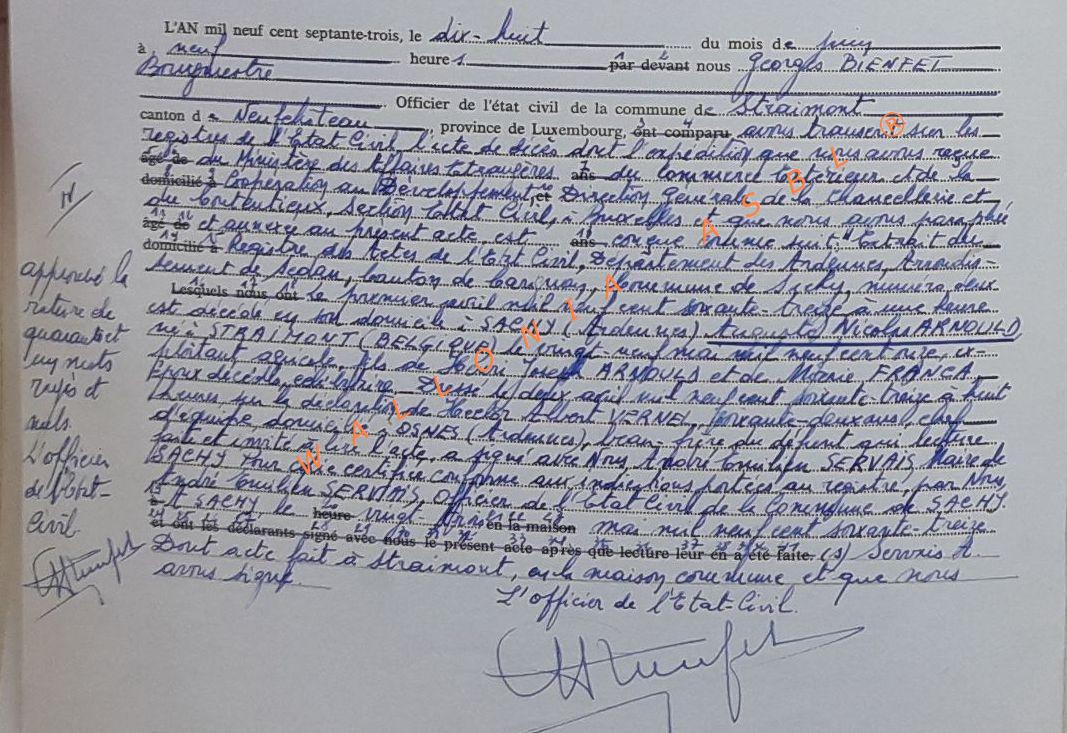 L'AN mil neuf cent septante-trois, le dix-huit du mois de juin
à neuf heures par devant nous Georges BIENFET
Bourgmestre
Officier de l'état civil de la commune de Straimont
canton de Neufchateau, province de Luxembourg, ont comparu avons transcrit sur les
registres de l'Etat Civil, l'acte de décès dont l'expédition que nous avons reçue
âgé de du Ministère des Affaires Etrangères ans du Commerce Extérieur et de la
domicilié à Coopération au Développement, et Direction Générale de la Chancellerie et
du Contentieux, Section Etat Civil, à Bruxelles et que nous avons paraphé
âgé de et annexée au présent acte est ans conçue comme suit : "Extrait du
domicilié à Registre des Actes de l'Etat Civil, Département des Ardennes, Arrondis-
sement de Sedan, Canton de Carignan, Commune de Sachy, numéro deux
Lesquels nous ont Le premier avril mil neuf cent soixante-treize à une heure
est décédé en son domicile à SACHY (Ardennes) Auguste Nicolas ARNOULD
né à STRAIMONT (BELGIQUE) le vingt-neuf mai mil neuf cent onze, ex-
ploitant agricole, fils de Henri Joseph ARNOULD et de Marie FRANCA
Epoux décédés, célibataire. Dressé le deux avril mil neuf cent soixante-treize à huit
heures sur la déclaration de Hector Albert VERNEL, soixante-douze ans, chef
d'équipe, domicilié à OSNES (Ardennes), beau-frère du défunt qui lecture
faite et invité à lire l'acte, a signé avec Nous, André Emilien SERVAIS, Maire de
SACHY Pour copie certifiée conforme aux indications portées au registre, par Nous,
André Emilien SERVAIS, Officier de l'Etat Civil de la Commune de SACHY.
A SACHY, le heure vingt trois en la maison mai mil neuf cent soixante-treize
et ont les déclarants signé avec nous le présent acte après que lecture leur en a été faite. (s) Servais A.
Dont acte fait à Straimont, en la maison commune, et que nous
avons signé.
L'officier de l'Etat-Civil.
approuvé la
rature de
quarante et
un mots
rayés et
nuls.
L'officier
de l'Etat-
Civil
WALLONIA ASBL ®